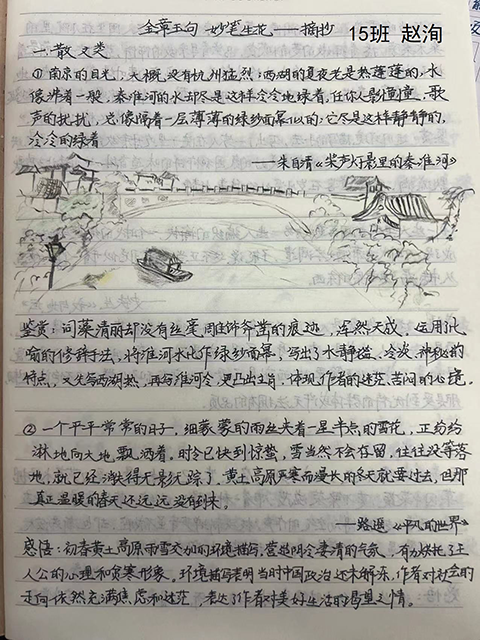 金章玉句 妙笔生花——摘抄 15班 赵洵
一.散文类
①南京的月光,大概没有杭州猛烈;西湖的夏夜老是热蓬蓬的,水
像沸着一般,秦淮河的水却尽是这样冷冷地绿着。任你人影幢幢,歌
声的扰扰,总像隔着一层薄薄的绿纱面幂似的;它尽是这样静静的,
冷冷的绿着
——朱自清《桨声灯影里的秦淮河》
鉴赏:词藻清丽却没有丝毫周旋饰凿的痕迹,浑然天成,运用比
喻的修辞手法,将淮河水比作绿纱面幂,写出了水静谧、冷淡、神秘的
特点,又先写西湖热,再写淮河冷,更凸出主旨,体现作者的迷茫、苦闷的心境。
②一个平平常常的日子,细蒙蒙的雨丝夹着一星半点的雪花,正纷纷
淋地向大地飘洒着。时令已快到惊蛰,雪当然不会存留,往往没等落
地,就已经消失得无影无踪了。黄土高原严寒而漫长的冬天就要过去,但那
真正温暖的春天还远远没有到来。
——路遥《平凡的世界》
感悟:初春黄土高原雨雪交加的环境描写,营造阴冷凄清的气氛,有力烘托了主
人公的心理和贫寒形象。环境描写表明当时中国政治还未解冻,作者对社会的
走向依然充满焦虑和迷茫,表达了作者对美好生活的渴望之情。